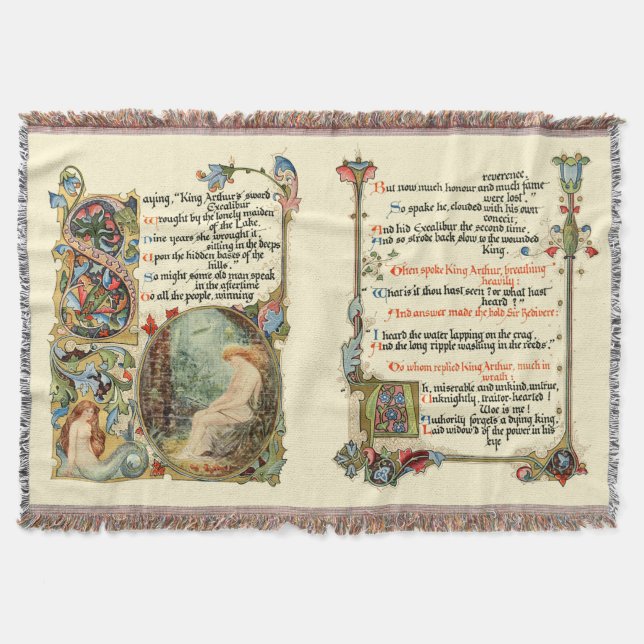 Saying, "King Arthur's sword
Excalibur
Wrought by the lonely maiden
of the Lake.
Nine years she wrought it,
sitting in the deeps
Upon the hidden bases of the
hills."
So might some old man speak
in the aftertime
To all the people, winning
reverence,
But now much honour and much fame
were lost."
So spake he, clouded with his own
conceit;
And hid Excalibur the second time,
And so strode back slow to the wounded
King.
Then spoke King Arthur, breathing
heavily:
"What is it thou hast seen? or what hast
heard?"
And answer made the bold Sir Bedivere:
"I heard the water lapping on the crag,
And the long ripple washing in the reeds."
To whom replied King Arthur, much in
wrath:
Ah, miserable and unkind, untrue,
Unknightly, traitor-hearted!
Woe is me!
Authority forgets a dying king,
Laid widow'd of the power in his
eye